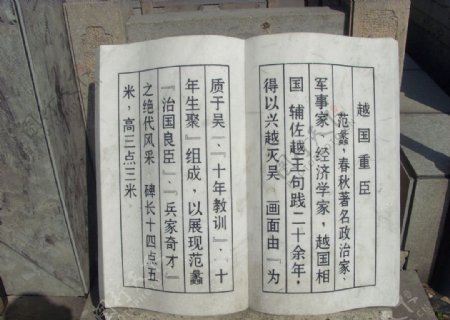 越国重臣
范蠡，春秋著名政治家、
军事家、经济学家，越国相
国 辅佐越王句践二十余年，
得以兴越灭吴 画面由『为
质于吴』、『十年教训』、『十
年生聚』组成，以展现范蠡
『治国良臣』、『兵家奇才』
之绝代风采 碑长十四点五
米，高三点三米